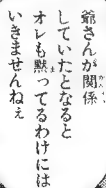 爺さんが関係
していたとなると
オレも黙ってるわけには
いきませんねぇ